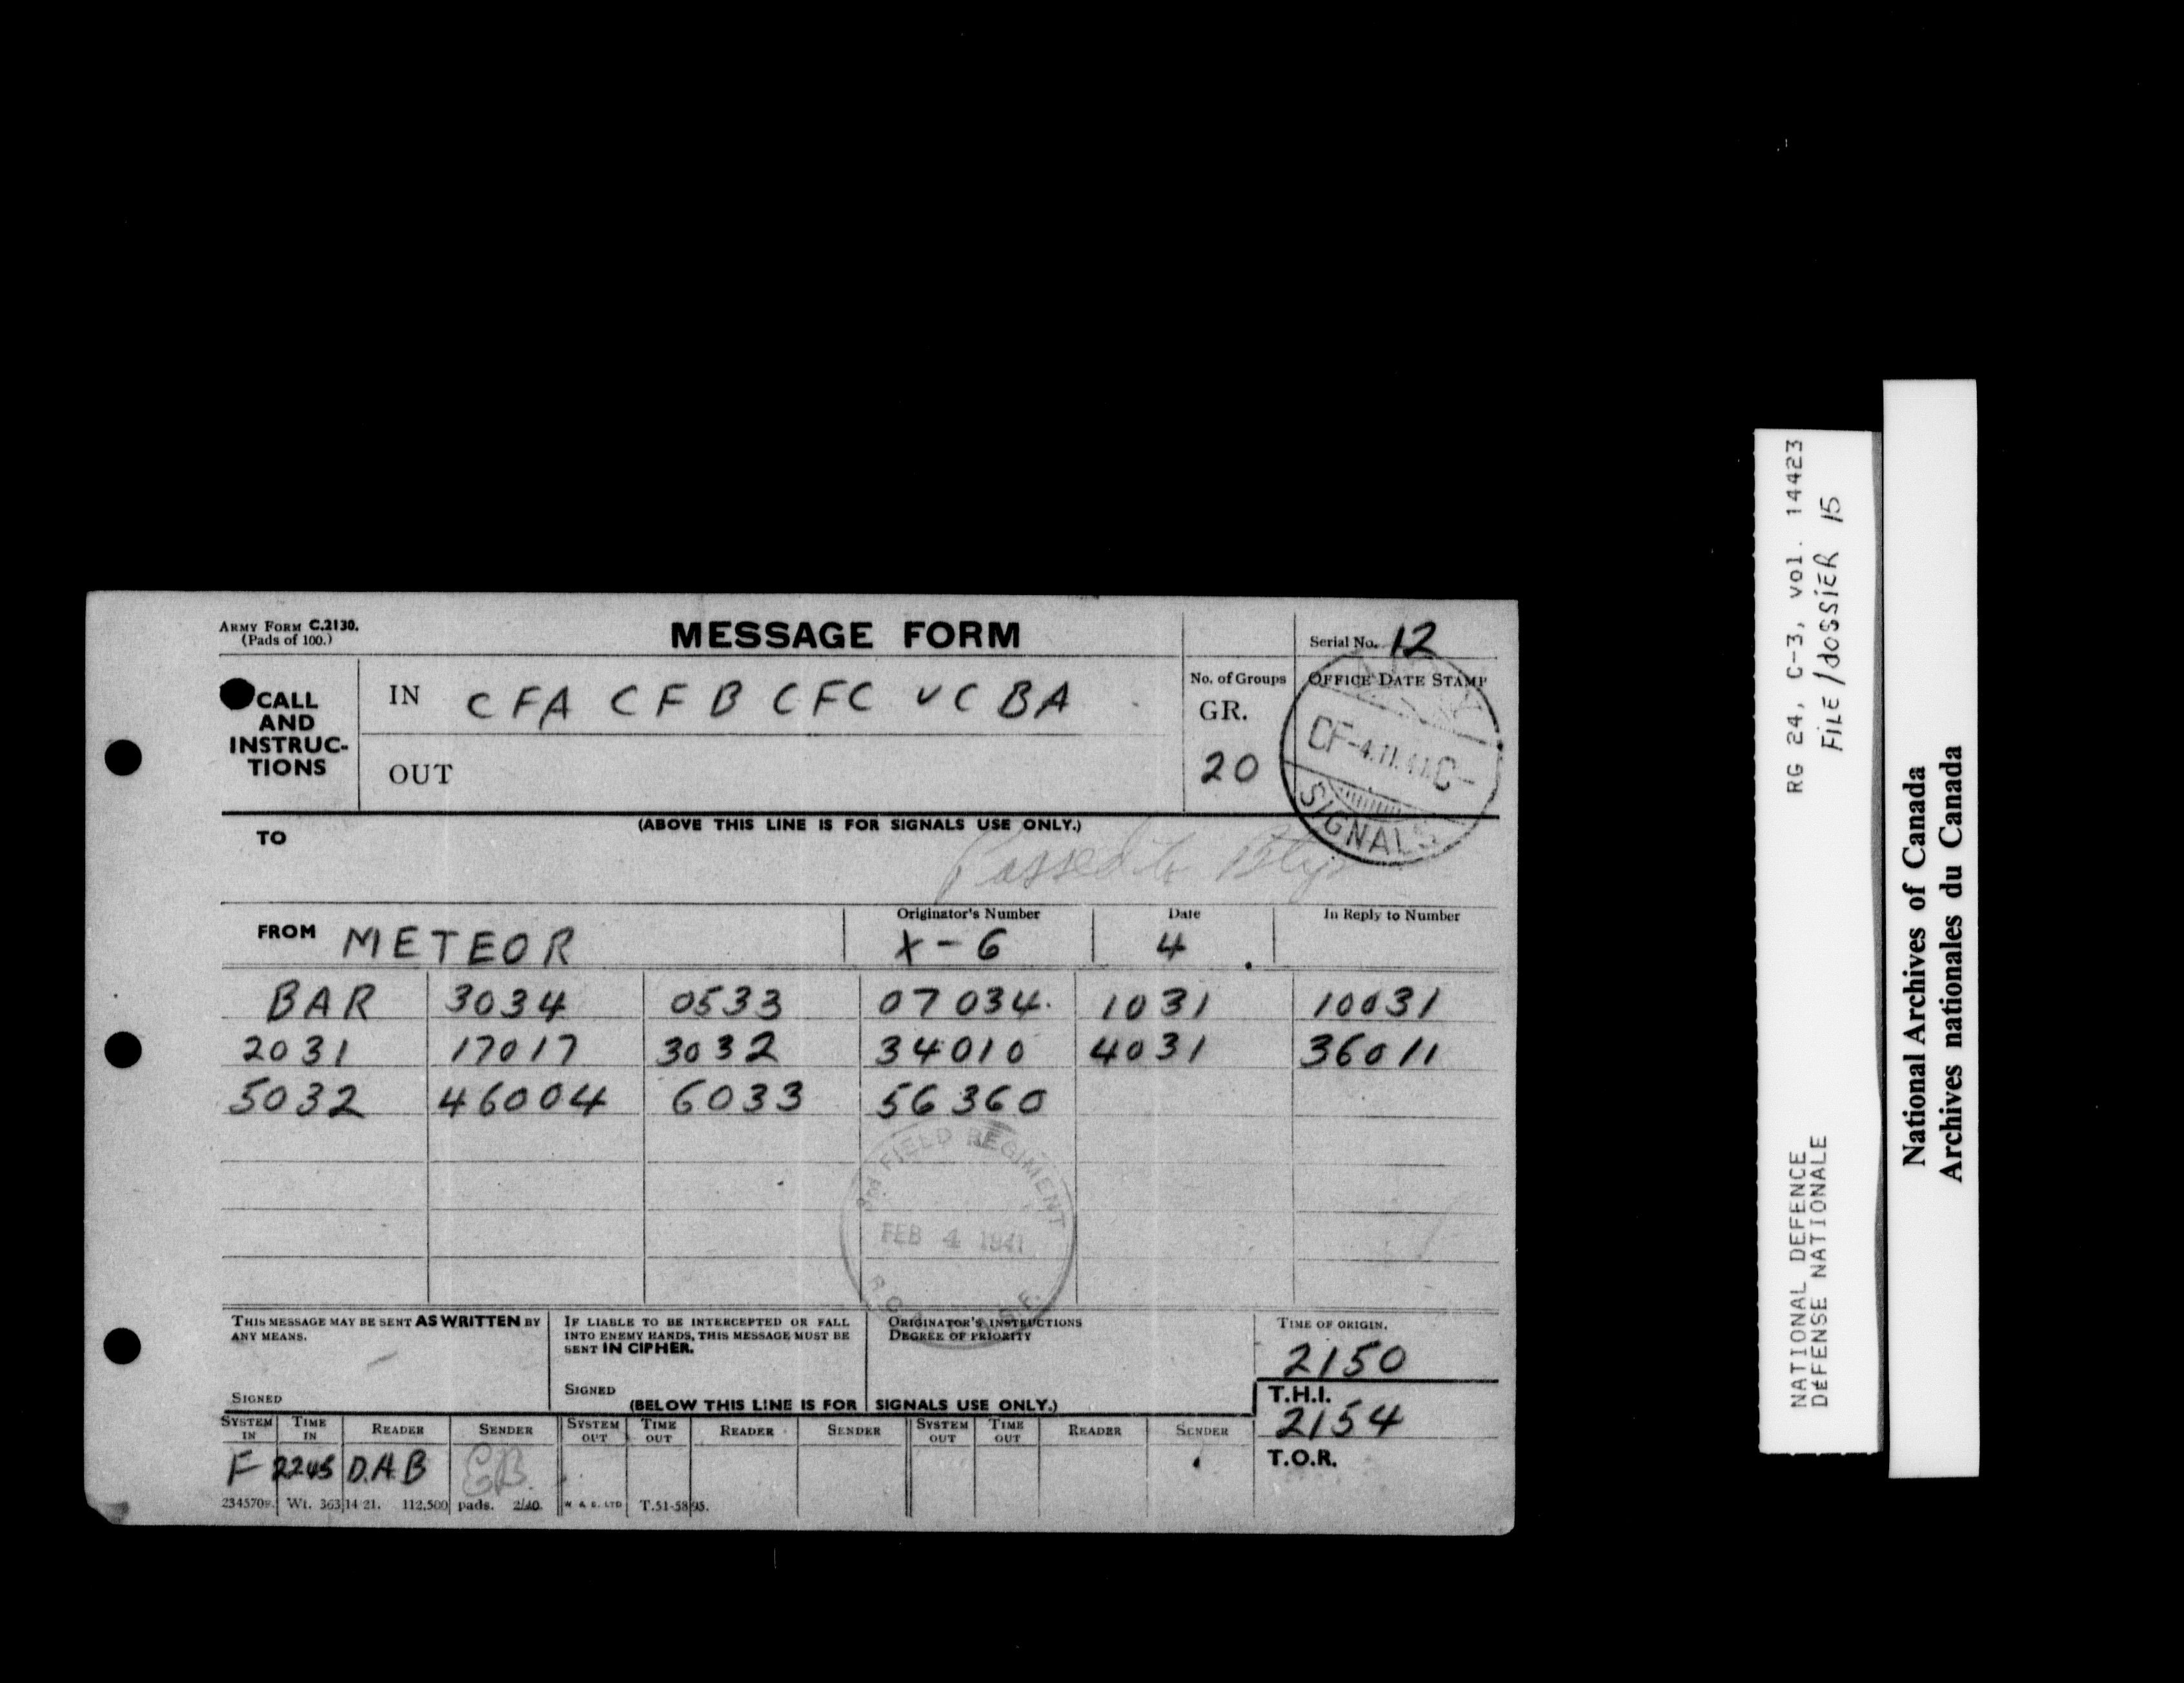 ARMY FORM C.2130.
(Pads of 100.)
MESSAGE FORM
Serial No. 12
CALL AND INSTRUC-TIONS
IN CFA CFB CFC VCBA
OUT
No. of Groups
GR.
20
OFFICE DATE STAMP
CF-4.11.41C-
SIGNALS
(ABOVE THIS LINE IS FOR SIGNALS USE ONLY.)
TO
Passed to Btys
FROM METEOR
Originator's Number
X-6
Date
4
In Reply to Number
BAR 3034 0533 07034 1031 10031
2031 17017 3032 34010 4031 36011
5032 46004 6033 56360
2nd FIELD REGIMENT
FEB 4 1941
THIS MESSAGE MAY BE SENT AS WRITTEN BY
ANY MEANS.
SIGNED
IF LIABLE TO BE INTERCEPTED OR FALL
INTO ENEMY HANDS, THIS MESSAGE MUST BE
SENT IN CIPHER.
SIGNED
ORIGINATOR'S INSTRUCTIONS
DEGREE OF PRIORITY
TIME OF ORIGIN.
2150
T.H.I.
2154
T.O.R.
(BELOW THIS LINE IS FOR SIGNALS USE ONLY.)
SYSTEM IN TIME IN READER SENDER SYSTEM OUT TIME OUT READER SENDER SYSTEM OUT TIME OUT READER SENDER
F 2245 D.A.B EB.
2345709. Wt. 363 14 21. 112,500 pads. 2/40. W & S. LTD T.51-5895.
RG 24, C-3, vol. 14423
FILE/dossier 15
NATIONAL DEFENCE
DÉFENSE NATIONALE
National Archives of Canada
Archives nationales du Canada